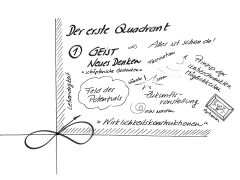 Der erste Quadrant
① GEIST
Neues Denken
Alles ist schon da!
Prinzip der
unbeschränkten
Möglichkeiten
Feld des
Potentials
Zukunfts-
vorstellung
Eins werden
"Wirklichkeitskonstruktionen"